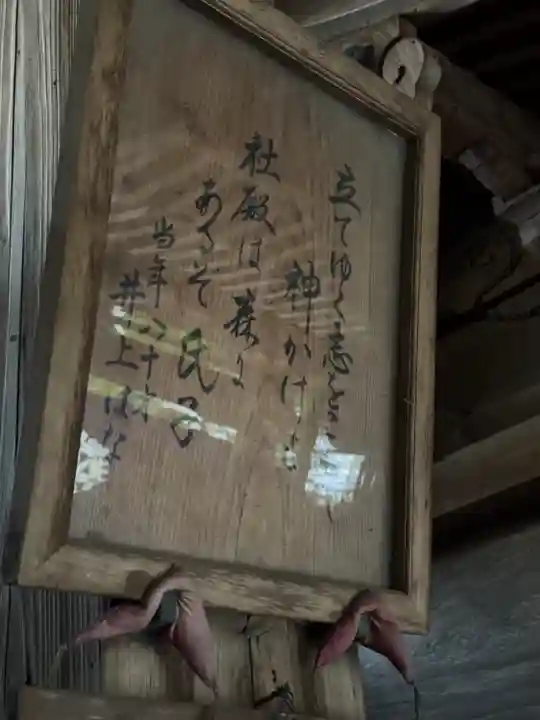 立てゆく志をよ
神かけて
社殿は森に
あらぞ 氏子
当年八十才
井上はな